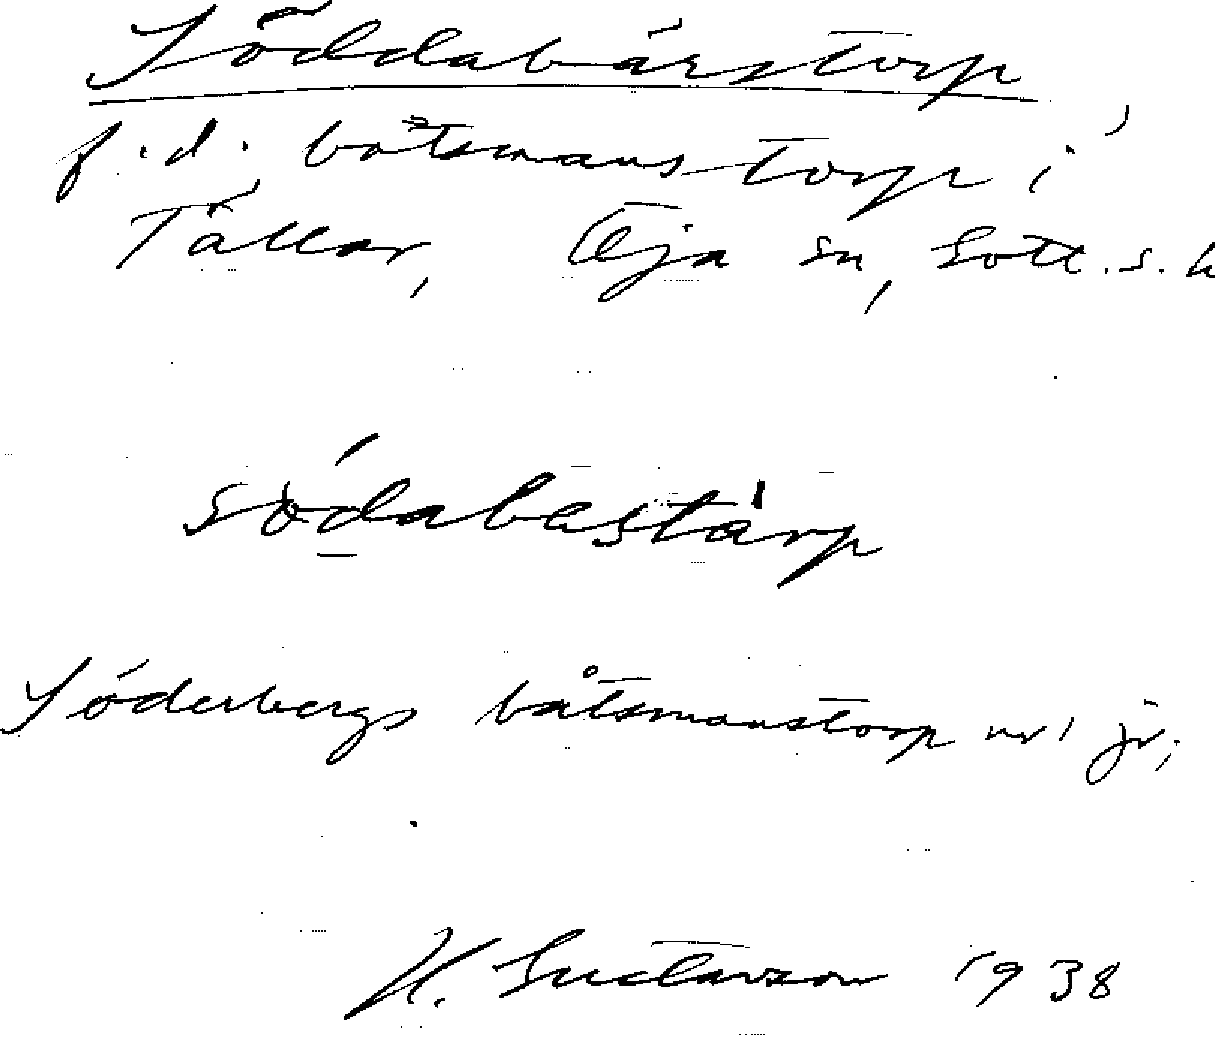 Söddabärstorp,
f.d. båtsmanstorp i
Tällar, Öja sn, Gotl. s. h
södabastårp
Söderbergs båtsmanstorp nr 1 jr,
H. Gustavson 1938